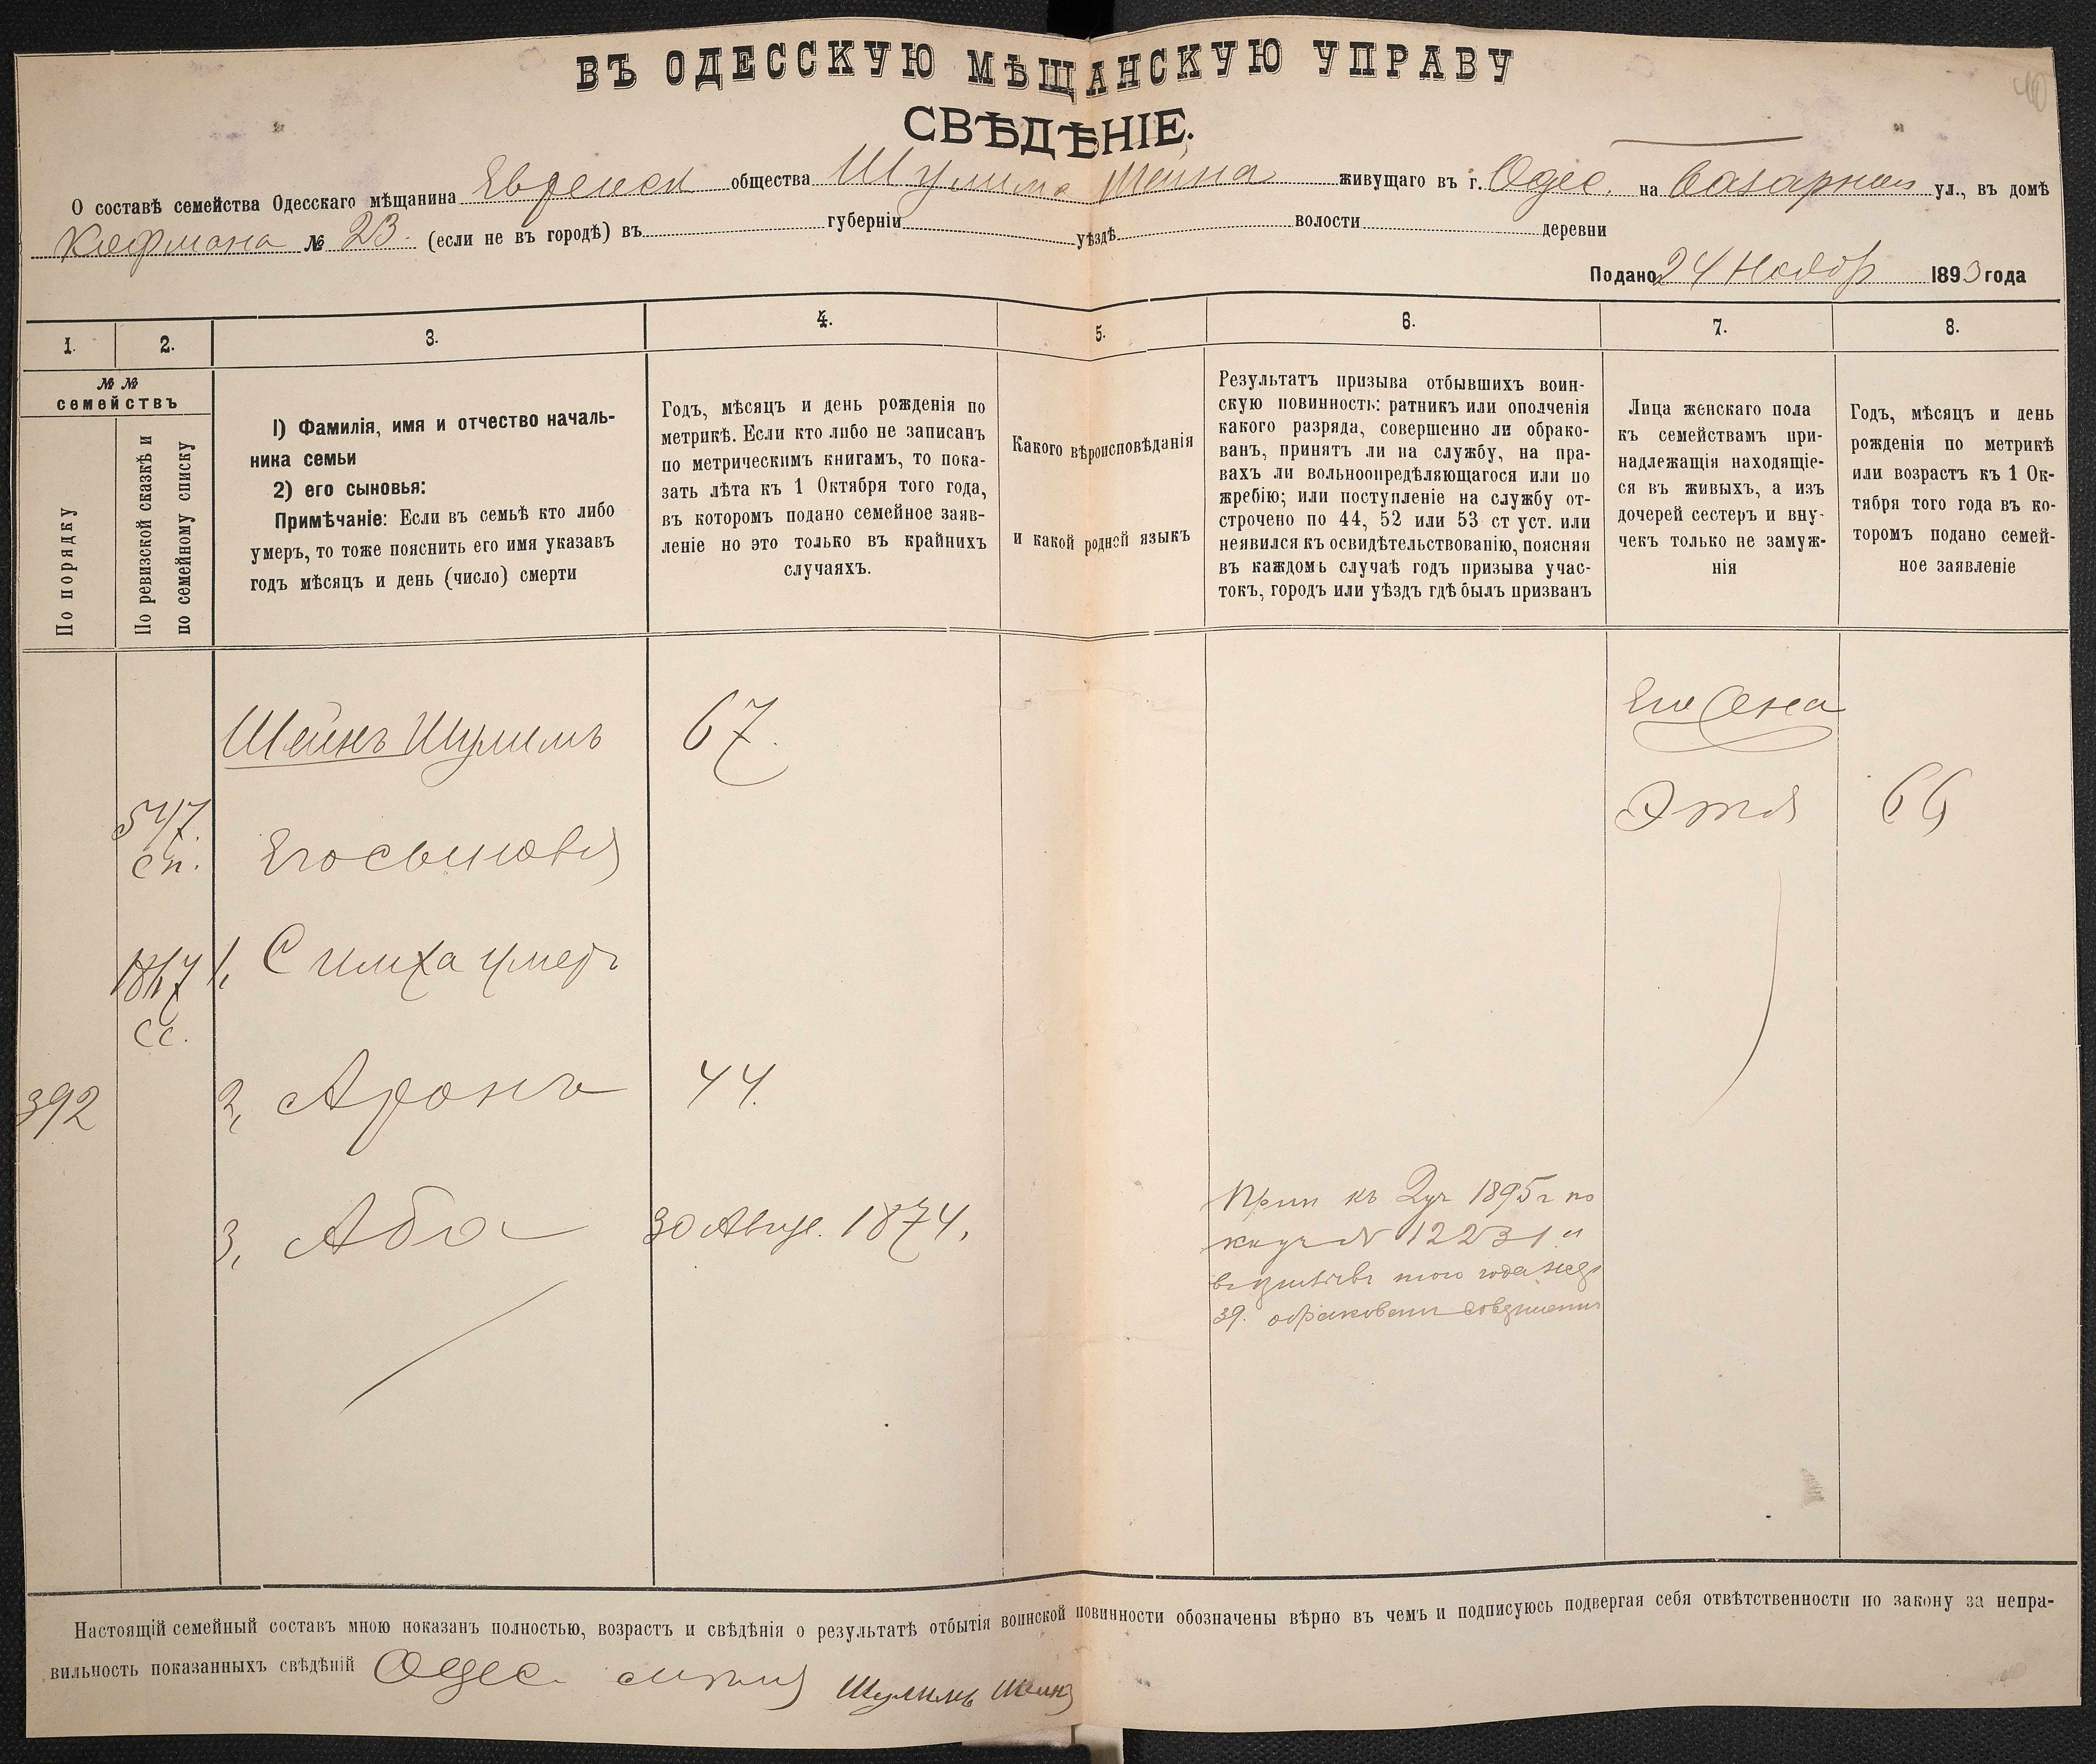 ВЪ ОДЕССКУЮ МѢЩАНСКУЮ УПРАВУ
СВѢДѢНІЕ.
О составѣ семейства Одесскаго мѣщанина Еврейск общества Шулима Шейна живущаго въ г. Одес. на Базарная ул., въ домѣ
№ 23. (если не въ городѣ) въ губерніи уѣздѣ волости деревни
Подано 24 Ноябр 1893 года
1. 2. 3. 4. 5. 6. 7. 8.
№ №
семействъ
По порядку
По ревизской сказкѣ и
по семейному списку
1) Фамилія, имя и отчество началь-
ника семьи
2) его сыновья:
Примѣчаніе: Если въ семьѣ кто либо
умеръ, то тоже пояснить его имя указавъ
годъ мѣсяцъ и день (число) смерти
Годъ, мѣсяцъ и день рожденія по
метрикѣ. Если кто либо не записанъ
по метрическимъ книгамъ, то пока-
зать лѣта къ 1 Октября того года,
въ которомъ подано семейное заяв-
леніе но это только въ крайнихъ
случаяхъ.
Какого вѣроисповѣданія
и какой родной языкъ
Результатъ призыва отбывшихъ воин-
скую повинность: ратникъ или ополченія
какого разряда, совершенно ли обрако-
ванъ, принятъ ли на службу, на пра-
вахъ ли вольноопредѣляющагося или по
жребію; или поступленіе на службу от-
строчено по 44, 52 или 53 ст уст. или
неявился къ освидѣтельствованію, поясняя
въ каждомъ случаѣ годъ призыва учас-
токъ, городъ или уѣздъ гдѣ былъ призванъ
Лица женскаго пола
къ семействамъ при-
надлежащія находящіе-
ся въ живыхъ, а изъ
дочерей сестеръ и вну-
чекъ только не замуж-
нія
Годъ, мѣсяцъ и день
рожденія по метрикѣ
или возрастъ къ 1 Ок-
тября того года въ ко-
торомъ подано семей-
ное заявленіе
Шейнъ Шулимъ 67.
Его жена
547.
сп.
Его сыновья
Этя 66
1, Симха умеръ
сс.
392
2, Аронъ 44.
3, Аба 30 Авгус. 1874.
Прип къ 2 уч 1895 г по
№ 12231 и
того года
39. обракованъ совершенно
Настоящій семейный составъ мною показанъ полностью, возрастъ и свѣдѣнія о результатѣ отбытія воинской повинности обозначены вѣрно въ чемъ и подписуюсь подвергая себя отвѣтственности по закону за непра-
вильность показанныхъ свѣдѣній Одес. Шулимъ Шейнъ